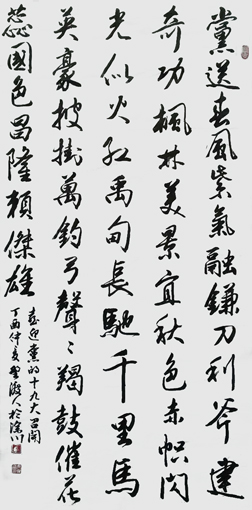 黨送春風紫氣融鐮刀利斧建
奇功楓林美景宜秋色赤幟閃
光似火紅禹甸長馳千里馬
英豪披掛萬鈞弓聲〻羯鼓催花
蕊國色昌隆賴傑雄
喜迎黨的十九大召開
丁酉仲